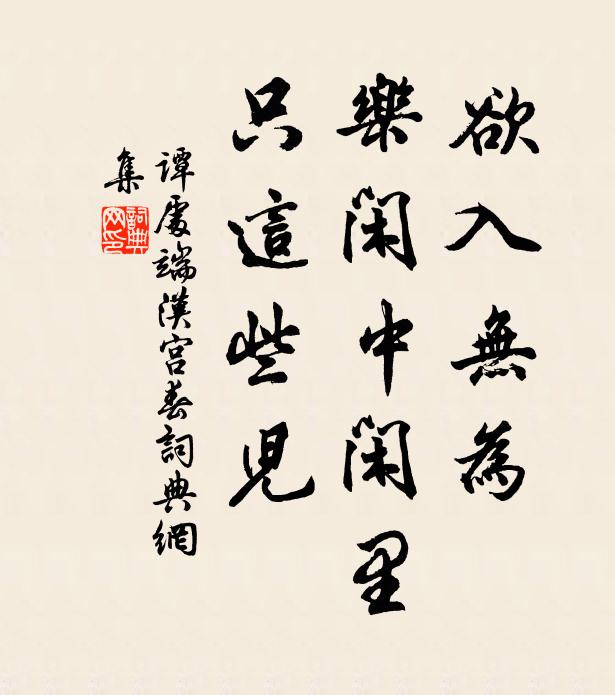 欲入無為
樂閑中閑里
只這些兒
譚處端漢宮春詞典網
集
詞典
网印